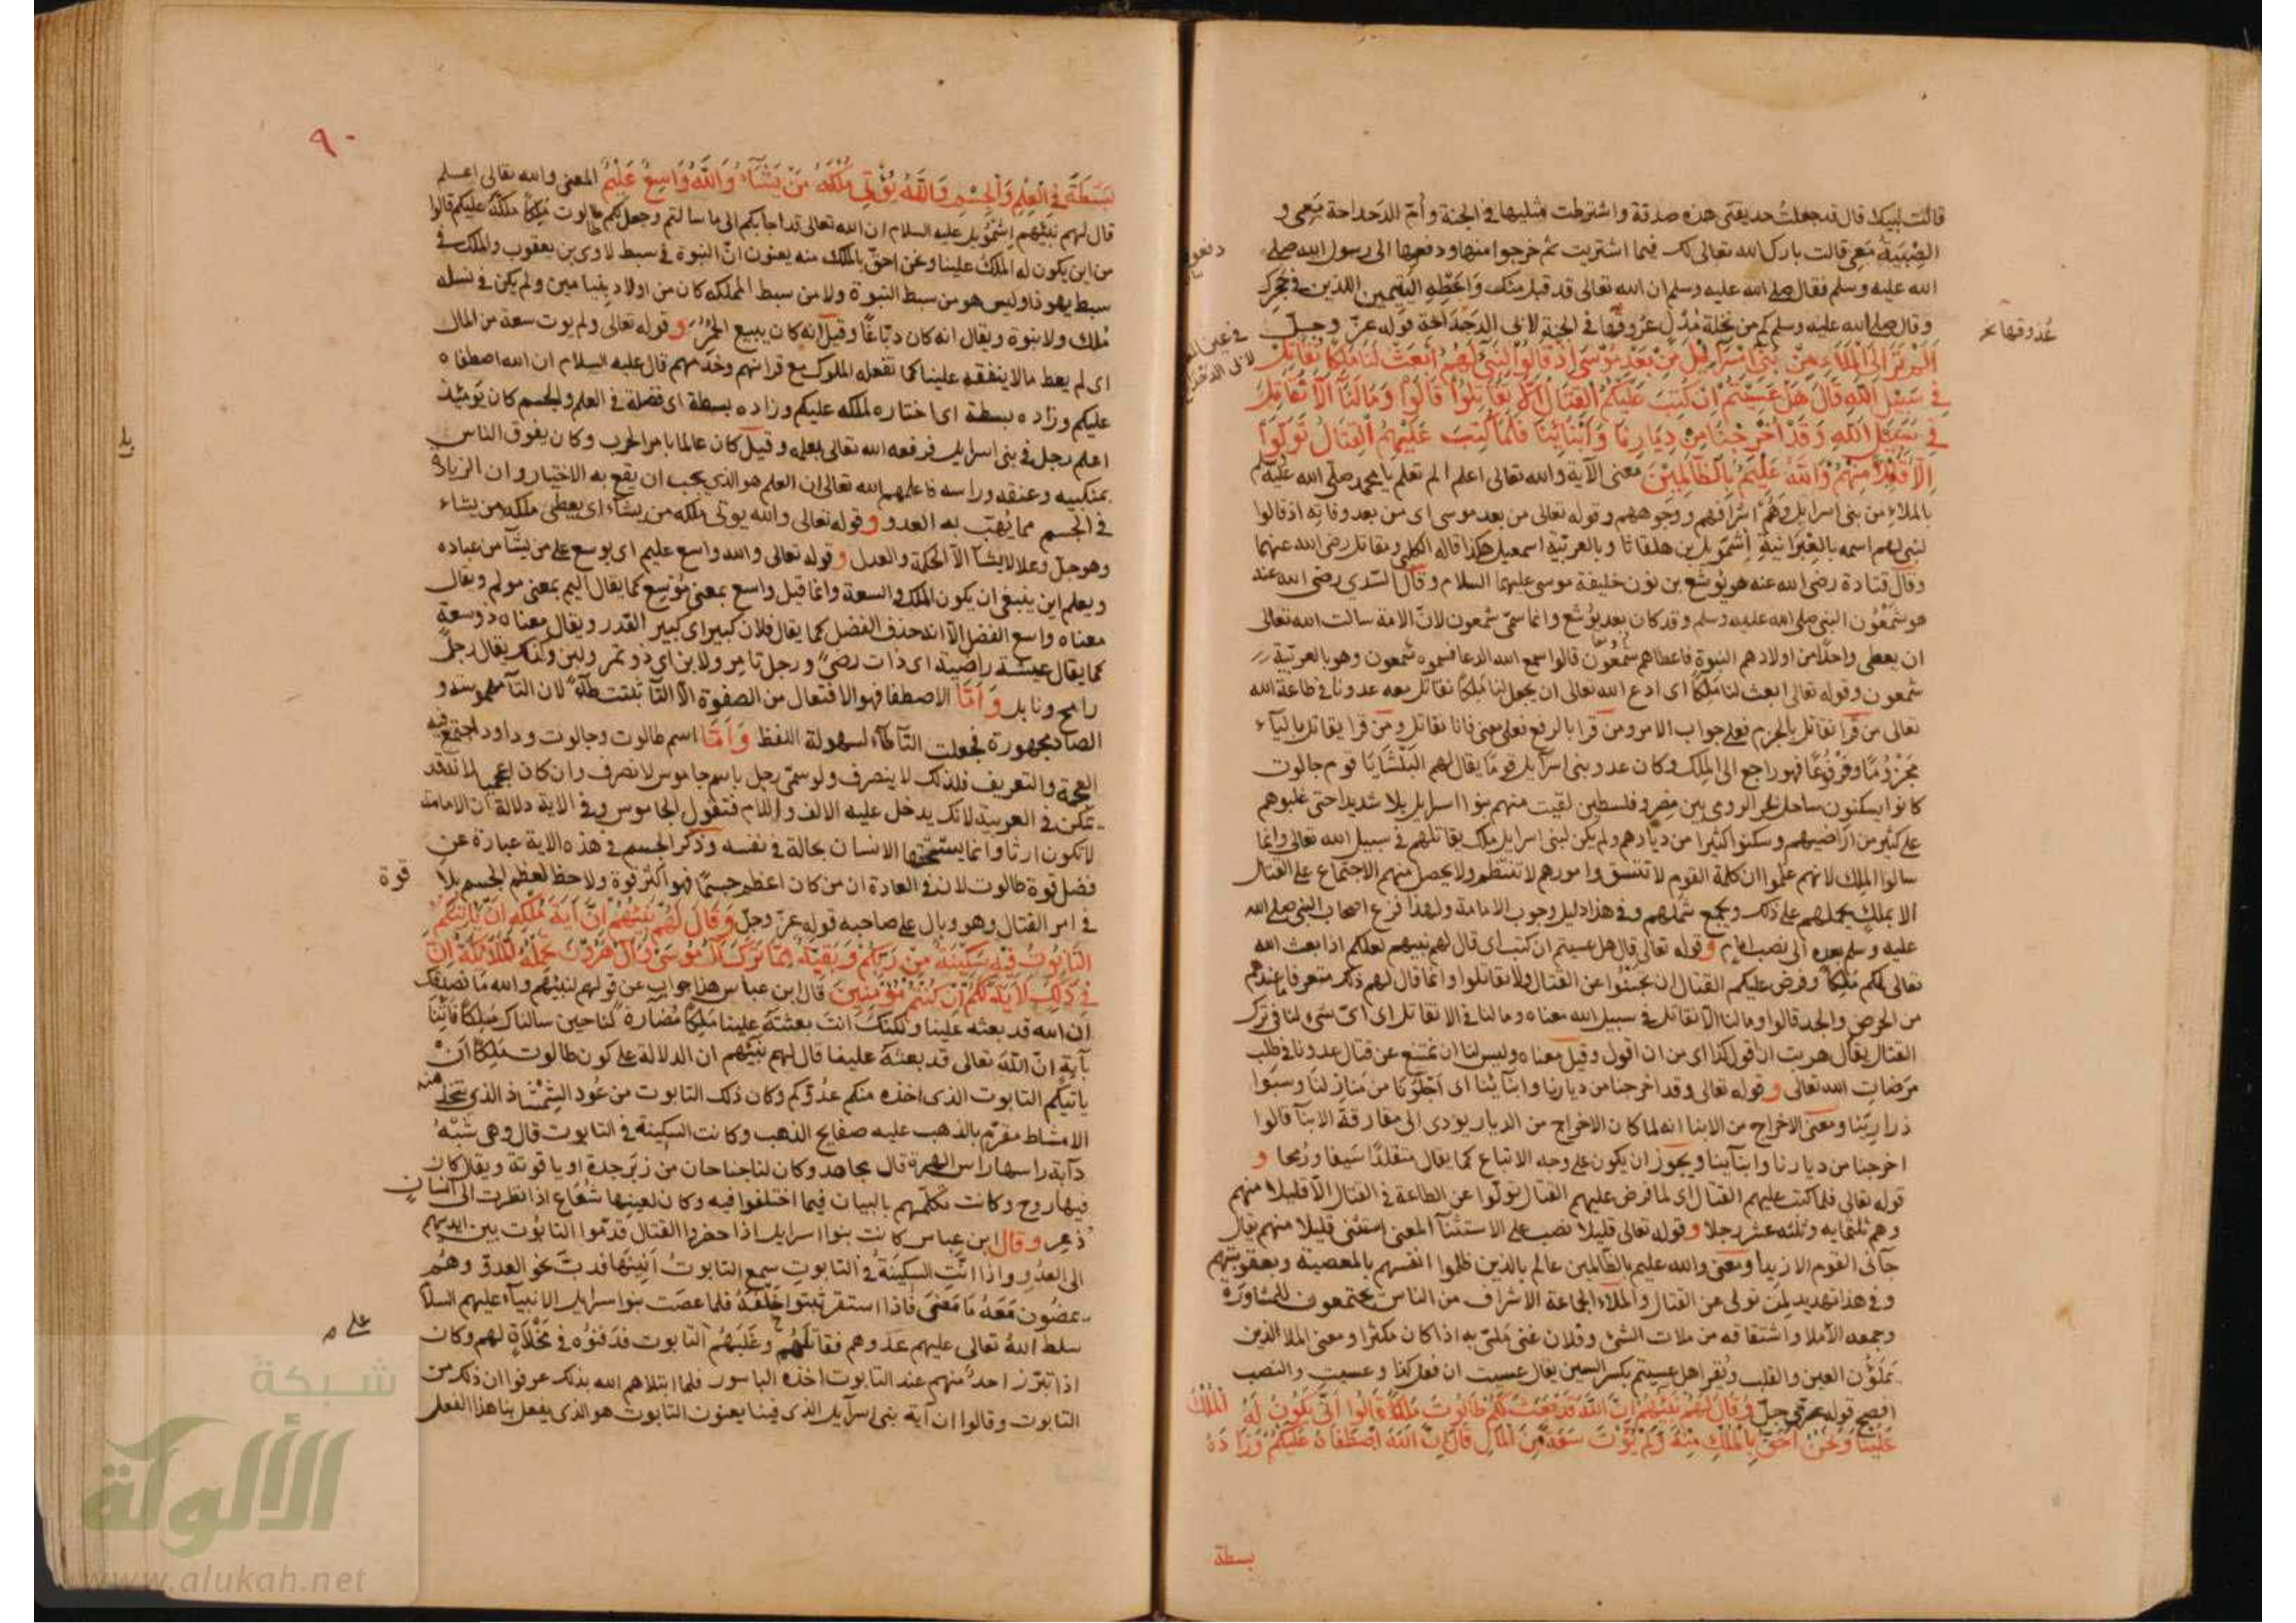 قالت لبيك قال قد جعلت حديقتى هذه صدقة واشترطت مثليها فى الجنة وأم الدحداحة معى و
الصِّبْيَةُ مَعِى قالت بارك الله تعالى لك فيما اشتريت ثم خرجوا منها ودفعها الى رسول الله صلى
الله عليه وسلم فقال صلى الله عليه وسلم ان الله تعالى قد قبل منك وَاعْطِهِ اليتيمين اللذين فى حجرك
وقال صلى الله عليه وسلم كم من نخلة مُدْلٍ عروقها فى الجنة لابى الدحداحة قوله عزّ وجلّ
عذوقها نخ
أَلَمْ تَرَ اِلَى الْمَلَاءِ مِنْ بَنِى اِسْرَائِيلَ مِنْ بَعْدِ مُوسَى اِذْ قَالُوا لِنَبِىٍّ لَهُمُ ابْعَثْ لَنَا مَلِكًا نُقَاتِلْ
فِى سَبِيلِ اللهِ قَالَ هَلْ عَسَيْتُمْ اِنْ كُتِبَ عَلَيْكُمُ الْقِتَالُ اَلَّا تُقَاتِلُوا قَالُوا وَمَا لَنَا اَلَّا نُقَاتِلَ
فِى سَبِيلِ اللهِ وَقَدْ اُخْرِجْنَا مِنْ دِيَارِنَا وَاَبْنَائِنَا فَلَمَّا كُتِبَ عَلَيْهِمُ الْقِتَالُ تَوَلَّوْا
اِلَّا قَلِيلًا مِنْهُمْ وَاللهُ عَلِيمٌ بِالظَّالِمِينَ معنى الآية والله تعالى اعلم الم تعلم يا محمد صلى الله عليه وسلم
بالملاء من بنى اسرايل وَهُمْ اشرافهم ووجوههم وقوله تعالى من بعد موسى اى من بعد وفاته اذ قالوا
لنبى لهم اسمه بالعبرانية اشمويل بن هلقانا وبالعربية اسمعيل هكذا قاله الكلبى ومقاتل رضى الله عنهما
وقال قتادة رضى الله عنه هو يوشع بن نون خليفة موسى عليهما السلام وقال السّدي رضى الله عنه
هو شمعون النبى صلى الله عليه وسلم وقد كان بعد يوشع وانما سمّى شمعون لانّ الامة سالت الله تعالى
ان يعطى واحدًا من اولادهم النبوة فاعطاهم شمعون قالوا سمع الله الدعا فسموه شمعون وهو بالعربيّة
شمعون وقوله تعالى ابعث لنا مَلِكًا اى ادع الله تعالى ان يجعل لنا مَلِكًا نقاتل معه عدونا فى طاعة الله
تعالى من قرا نقاتل بالجزم فعلى جواب الامر ومن قرا بالرفع فعلى معنى فانا نقاتل ومن قرا يقاتل بالياء
مجزومًا ومرفوعًا فهو راجع الى المِلك وكان عدو بنى اسرآيل قومًا يقال لهم البلشايا قوم جالوت
كانوا يسكنون ساحل بحر الروم بين مصر وفلسطين لقيت منهم بنوا اسرايل بلا شديدا حتى غلبوهم
على كثير من اراضيهم وسكنوا كثيرا من ديارهم ولم يكن لبنى اسرايل ملك يقاتلهم فى سبيل الله تعالى وانما
سالوا الملك لانهم علموا ان كلمة القوم لا تتسق وامورهم لا تنتظم ولا يحصل منهم الاجتماع على القتال
الا بملك يحملهم على ذلك ويجمع شملهم وفى هذا دليل وجوب الامامة ولهذا فزع اصحاب النبى صلى الله
عليه وسلم بعده الى نصب امام وقوله تعالى قال هل عسيتم ان كتب اى قال لهم نبيهم لعلكم اذا بعث الله
تعالى لكم مَلِكًا وفرض عليكم القتال ان تجبنوا عن القتال ولا تقاتلوا وانما قال لهم ذلك متعرفا ما عندهم
من الحرص والجد قالوا وما لنا الّا نقاتل فى سبيل الله معناه وما لنا فى الا نقاتل اى اىّ شىء لنا فى ترك
القتال يقال هربت ان اقول كذا اى من ان اقول وقيل معناه وليس لنا ان نمتنع عن قتال عدونا فى طلب
مرضات الله تعالى وقوله تعالى وقد اخرجنا من ديارنا وابنآئنا اى اخلونا من منازلنا وسبوا
ذرارينا ومعنى الاخراج من الابنا انه لما كان الاخراج من الديار يؤدى الى مفارقة الابنآ قالوا
اخرجنا من ديارنا وابنآينا ويجوز ان يكون على وجه الاتباع كما يقال متقلدًا سيفا ورمحا و
قوله تعالى فلما كتب عليهم القتال اى لما فرض عليهم القتال تولّوا عن الطاعة فى القتال الّا قليلا منهم
وهم ثلثمايه وثلثه عشر رجلا وقوله تعالى قليلا نصب على الاستثنآ المعنى استثنى قليلا منهم يقال
جآنى القوم الا زيدا ومعنى والله عليم بالظّالمين عالم بالذين ظلموا انفسهم بالمعصية وبعقوبتهم
وفى هذا تهديد لمن تولى عن القتال والملاء الجماعة الاشراف من الناس يجتمعون للمشاورة
وجمعه الاملا واشتقاقه من ملات الشئ وفلان غنى مَلىّ به اذا كان مكثرا ومعنى الملا الذين
يملؤن العين والقلب ويُقرا هل عسيتم بكسر السين يقال عسيت ان فعل كذا وعسيت والنصب
افصح قوله عزّ وجلّ وَقَالَ لَهُمْ نَبِيُّهُمْ اِنَّ اللهَ قَدْ بَعَثَ لَكُمْ طَالُوتَ مَلِكًا قَالُوا اَنَّى يَكُونُ لَهُ الْمُلْكُ
عَلَيْنَا وَنَحْنُ اَحَقُّ بِالْمُلْكِ مِنْهُ وَلَمْ يُؤْتَ سَعَةً مِنَ الْمَالِ قَالَ اِنَّ اللهَ اصْطَفَاهُ عَلَيْكُمْ وَزَادَهُ
بسطة
٩٠
بَسْطَةً فِى الْعِلْمِ وَالْجِسْمِ وَاللهُ يُؤْتِى مُلْكَهُ مَنْ يَشَاءُ وَاللهُ وَاسِعٌ عَلِيمٌ المعنى والله تعالى اعلم
قال لهم نبيّهم اشمويل عليه السلام ان الله تعالى قد اجابكم الى ما سالتم وجعل لكم طالوت مَلِكًا ملّكه عليكم قالوا
من اين يكون له الملك علينا ونحن احقّ بالملك منه يعنون انّ النبوة فى سبط لاوى بن يعقوب والملك فى
سبط يهوذا وليس هو من سبط النبوة ولا من سبط المملكه كان من اولاد بنيامين ولم يكن فى نسله
مُلك ولا نبوة ويقال انه كان دبّاغًا وقيل انه كان يبيع الخمر وقوله تعالى ولم يوت سعة من المال
اى لم يعط مالا ينفقه علينا كما تفعله الملوك مع قرانهم وخدمهم قال عليه السلام ان الله اصطفاه
عليكم وزاده بسطة اى اختاره لملكه عليكم وزاده بسطة اى فضلة فى العلم والجسم كان يومئذ
اعلم رجل فى بنى اسرايل فرفعه الله تعالى بعلمه وقيل كان عالما بامر الحرب وكان يفوق الناس
بمنكبيه وعنقه وراسه فاعلمهم الله تعالى ان العلم هو الذى يجب ان يقع به الاختيار وان الزيادة
فى الجسم مما يُهيّب به العدو وقوله تعالى والله يوتى ملكه من يشاء اى يعطى ملكه من يشاء
وهو جلّ وعلا لا يشآ الّا الحكمة والعدل وقوله تعالى والله واسع عليم اى يوسع على من يشآ من عباده
ويعلم اين ينبغى ان يكون الملك والسعة وانما قيل واسع بمعنى مُوسِع كما يقال اليم بمعنى مولم ويقال
معناه واسع الفضل الّا انه حذف الفضل كما يقال فلان كبير اى كبير القدر ويقال معناه ذو سعة
كما يقال عيشة راضية اى ذات رضىً ورجل تامر ولابن اى ذو تمر ولبن وكذلك يقال رجلٌ
رامح ونابل وَاَمّا الاصطفا فهو الافتعال من الصفوة الّا التآ ثبتت طآءً لان التآ مهموسة و
الصاد مجهورة فجعلت التّآ طآءً لسهولة اللفظ وَاَمّا اسم طالوت وجالوت وداود اجتمع فيه
العجمة والتعريف فلذلك لا ينصرف ولو سمّى رجل باسم جاموس لانصرف وان كان اعجميا لانه قد
تمكّن فى العربية لانك يدخل عليه الالف واللام فتقول الجاموس وفى الاية دلالة ان الامامة
لا تكون ارثا وانما يستحقها الانسان بحالة فى نفسه وذكر الجسم فى هذه الاية عبارة عن
فضل قوة طالوت لان فى العادة ان من كان اعظم جسمًا فهو اكثر قوة ولا حظ لعظم الجسم بلا قوة
فى امر القتال وهو وبال على صاحبه قوله عزّ وجلّ وَقَالَ لَهُمْ نَبِيُّهُمْ اِنَّ آيَةَ مُلْكِهِ اَنْ يَأْتِيَكُمُ
التَّابُوتُ فِيهِ سَكِينَةٌ مِنْ رَبِّكُمْ وَبَقِيَّةٌ مِمَّا تَرَكَ آلُ مُوسَى وَآلُ هَرُونَ تَحْمِلُهُ الْمَلَائِكَةُ اِنَّ
فِى ذَلِكَ لَآيَةً لَكُمْ اِنْ كُنْتُمْ مُؤْمِنِينَ قال ابن عباس هذا جواب عن قولهم لنبيّهم والله ما نصدقك
ان الله قد بعثه علينا ولكنك انت بعثته علينا مَلِكًا مُضارة لنا حين سالناك مَلِكًا فَاتِنَا
بآية انّ الله تعالى قد بعثه علينا قال لهم نبيّهم ان الدلالة على كون طالوت مَلِكًا ان
ياتيكم التابوت الذى اخذه منكم عدوّكم وكان ذلك التابوت من عُود الشمشاذ الذى يتخذ منه
الامشاط مقرّم بالذهب عليه صفايح الذهب وكانت السكينة فى التابوت قال وهى شبْهُ
دآبة راسها راس الهرة قال مجاهد وكان لنا جناحان من زبرجدة او ياقوتة ويقال كان
فيها روح وكانت تكلّمهم بالبيان فيما اختلفوا فيه وكان لعينها شُعَاع اذا نظرت الى انسان
ذُعِر وقال ابن عباس كانت بنوا اسرايل اذا حضروا القتال قدّموا التابُوت بين ايديهم
الى العدُوِ واذا انّتِ السكينَةُ فى التابوتِ سمع التابوتُ انينها فدبّ نحو العدوّ وهُم
يمضُون مَعَهُ ما مَضَى فاذا استقر ثبتوا خَلْفَهُ فلما عصَت بنوا اسرايل الانبيآء عليهم السلام
سلط اللهُ تعالى عليهم عدوهم فقاتلَهُم وغَلَبَهُم على التابوت فدَفنوُه فى مَخْلاةٍ لهم وكان
اذا تبرّز احدٌ منهم عند التابوت اخذه الباسور فلما ابتلاهم الله بذلك عرفوا ان ذلك من
التابوت وقالوا ان آية بنى اسرآيل الذى فينا يعنون التابوت هو الذى يفعل بنا هذا الفعل
شبكة
الألوكة
www.alukah.net